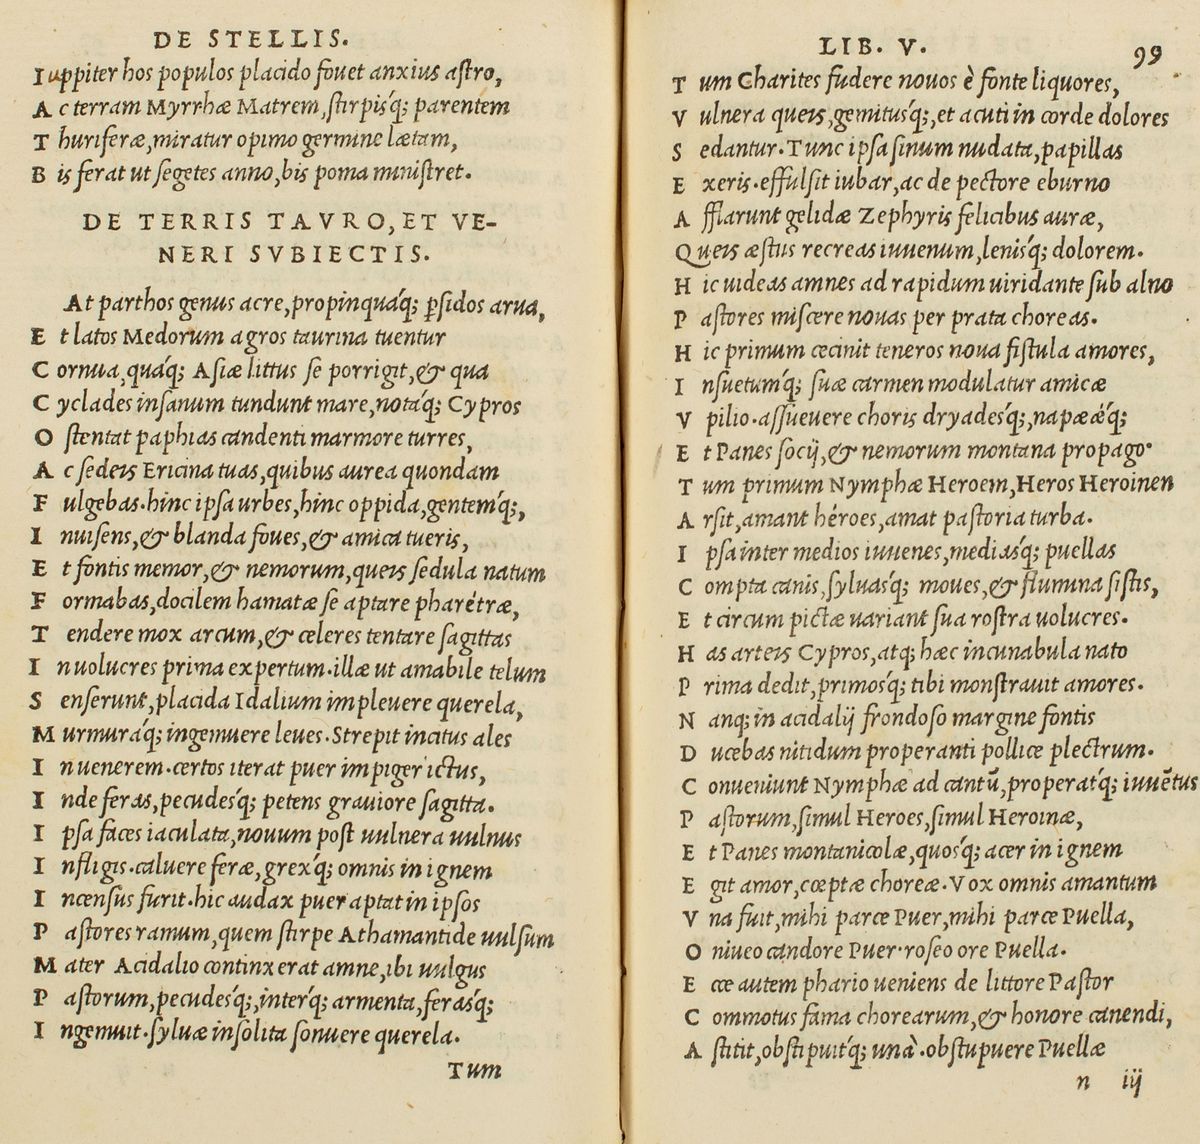 DE STELLIS.
Iuppiter hos populos placido fouet anxius astro,
Ac terram Myrrhæ Matrem, stirpisq́; parentem
Thuriferæ, miratur opimo germine lætam,
Bis ferat ut segetes anno, bis poma ministret.
DE TERRIS TAVRO, ET VE-
NERI SVBIECTIS.
At parthos genus acre, propinquáq́; ꝑsidos arua,
Et latos Medorum agros taurina tuentur
Cornua, quáq́; Asiæ littus se porrigit, & qua
Cyclades insanum tundunt mare, notáq́; Cypros
Ostentat paphias candenti marmore turres,
Ac sedeis Ericina tuas, quibus aurea quondam
Fulgebas. hinc ipsa urbes, hinc oppida, gentemq́;,
Inuisens, & blanda foues, & amica tueris,
Et fontis memor, & nemorum, queis sedula natum
Formabas, docilem hamatæ se aptare pharétræ,
Tendere mox arcum, & celeres tentare sagittas
In uolucres prima expertum. illæ ut amabile telum
Senserunt, placida Idalium impleuere querela,
Murmuráq́; ingemuere leues. Strepit incitus ales
In uenerem. certos iterat puer impiger ictus,
Inde feras, pecudesq́; petens grauiore sagitta.
Ipsa faces iaculata, nouum post uulnera uulnus
Infligis. caluere feræ, grexq́; omnis in ignem
Incensus furit. hic audax puer aptat in ipsos
Pastores ramum, quem stirpe Athamantide uulsum
Mater Acidalio continxerat amne, ibi uulgus
Pastorum, pecudesq́;, interq́; armenta, ferasq́;
Ingemuit. syluæ insolita sonuere querela.
Tum
LIB. V. 99
Tum Charites fudere nouos è fonte liquores,
Vulnera queis, gemitusq́;, et acuti in corde dolores
Sedantur. Tunc ipsa sinum nudata, papillas
Exeris. effulsit iubar, ac de pectore eburno
Afflarunt gelidæ Zephyris felicibus auræ,
Queis æstus recreas iuuenum, lenisq́; dolorem.
Hic uideas amnes ad rapidum uiridante sub alno
Pastores miscere nouas per prata choreas.
Hic primum cecinit teneros noua fistula amores,
Insuetumq́; suæ carmen modulatur amicæ
Vpilio. assueuere choris dryadesq́;, napæǽq́;
Et Panes socij, & nemorum montana propago.
Tum primum Nymphæ Heroem, Heros Heroinen
Arsit, amant héroes, amat pastoria turba.
Ipsa inter medios iuuenes, mediasq́; puellas
Compta canis, syluasq́; moues, & flumina sistis,
Et circum pictæ uariant sua rostra uolucres.
Has arteis Cypros, atq; hæc incunabula nato
Prima dedit, primosq́; tibi monstrauit amores.
Nanq; in acidalij frondoso margine fontis
Ducebas nitidum properanti pollice plectrum.
Conueniunt Nymphæ ad cantū, properatq́; iuuētus
Pastorum, simul Heroes, simul Heroinæ,
Et Panes montanicolæ, quosq́; acer in ignem
Egit amor, cœptæ choreæ. Vox omnis amantum
Vna fuit, mihi parce Puer, mihi parce Puella,
O niueo candore Puer. roseo ore Puella.
Ecce autem phario ueniens de littore Pastor
Commotus fama chorearum, & honore canendi,
Astitit, obstipuitq́; unà. obstupuere Puellæ
n iij